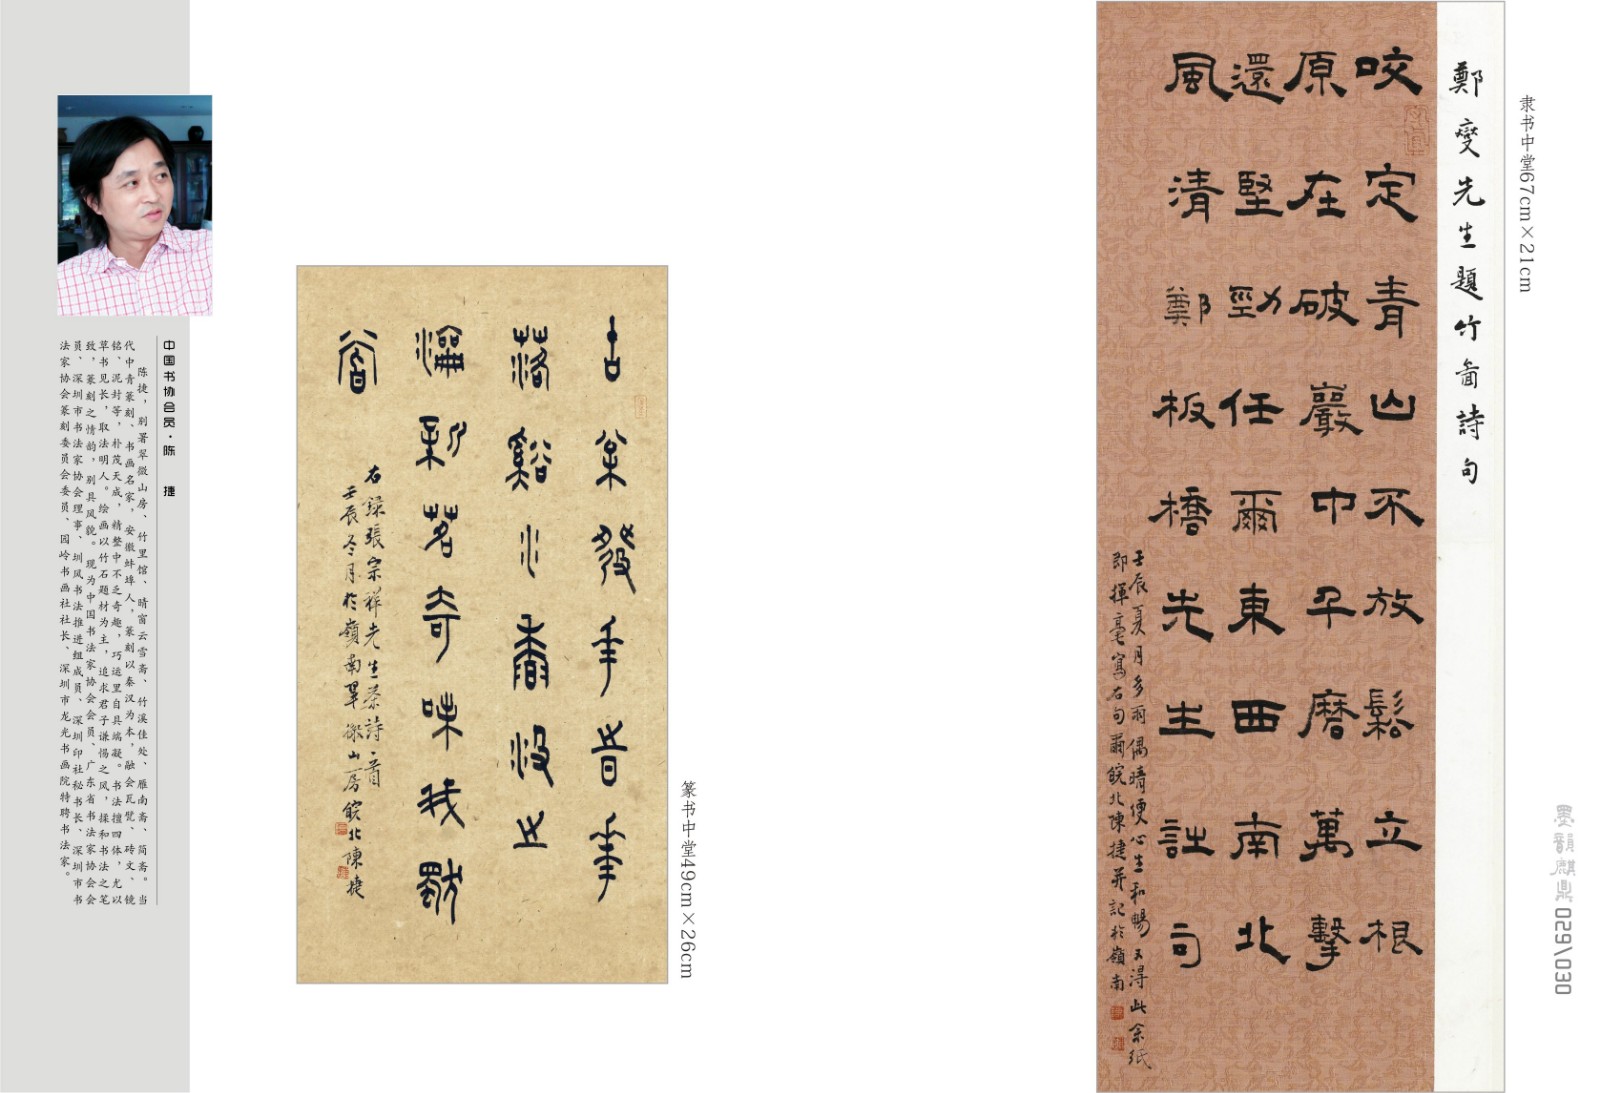 中国书协会员·陈 捷
陈捷，别署翠微山房、竹里馆、晴窗云雪斋、竹溪佳处、雁南斋、简斋。当
代中青篆刻、书画名家，安徽蚌埠人，篆刻以秦汉为本，融会瓦甓、砖文、镜
铭、泥封等，朴茂天成，精整中不乏奇趣，巧运里自具端凝。书法擅四体，尤以
草书见长，取法明人。绘画以竹石题材为主，追求君子谦惕之风，揉和书法之笔
致，篆刻之情韵，别具风貌。现为中国书法家协会会员、广东省书法家协会会
员、深圳市书法家协会理事、圳风书法推进组成员、深圳印社秘书长、深圳市书
法家协会篆刻委员会委员、园岭书画社社长、深圳市龙光书画院特聘书法家。
右録張宗祥先生茶詩一首
壬辰冬月於嶺南翠微山房皖北陳捷
篆书中堂49cm×26cm
鄭燮先生題竹啚詩句
咬定青山不放鬆立根
原在破巖中千磨萬擊
還堅勁任爾東西南北
風清鄭板橋先生詩句
壬辰夏月多雨偶晴便心生和暢又得此余紙
即揮毫寫右句爾皖北陳捷并記於嶺南
隶书中堂67cm×21cm
墨韻麒鼎 029/030